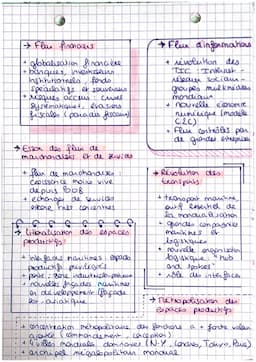 → Flux financiers
+ globalisation financière
+ banques, investisseurs
institutionnels, fonds
spéculatifs et souverains
+ risques accrus : crises
systémiques, évasions
fiscales (paradis fiscaux)
→ Flux d'informations
+ révolution des
TIC : Internet -
réseaux sociaux -
groupes multimédias
mondiaux
+ nouvelle économie
numérique (modèle
C2C)
+ Flux contrôlés par
de grandes entreprises
→ Essor des flux de
marchandises et de services
+ flux de marchandises :
croissance moins vive
depuis 2008
+ échanges de services
encore très concentrés
→ Révolution des
transports
+ transport maritime,
outil essentiel de
la mondialisation
+ grandes compagnies
maritimes
logistiques
+ nouvelle organisation
logistique : "Hub
and spokes"
+ rôle des interfaces
→ Littoralisation des espaces
productifs
+ interfaces maritimes : espaces
productifs privilégiés
+ ports : zone industrialo-portuaire
+ nouvelles façades maritimes
en développement (façade
est-asiatique)
→ Métropolisation des
espaces productifs
+ concentration métropolitaine des fonctions à + forte valeur
ajoutée (commandement, conception)
+ villes mondiales dominantes (N.Y, Londres, Tokyo, Paris)
+ archipel mégalopolitain mondial